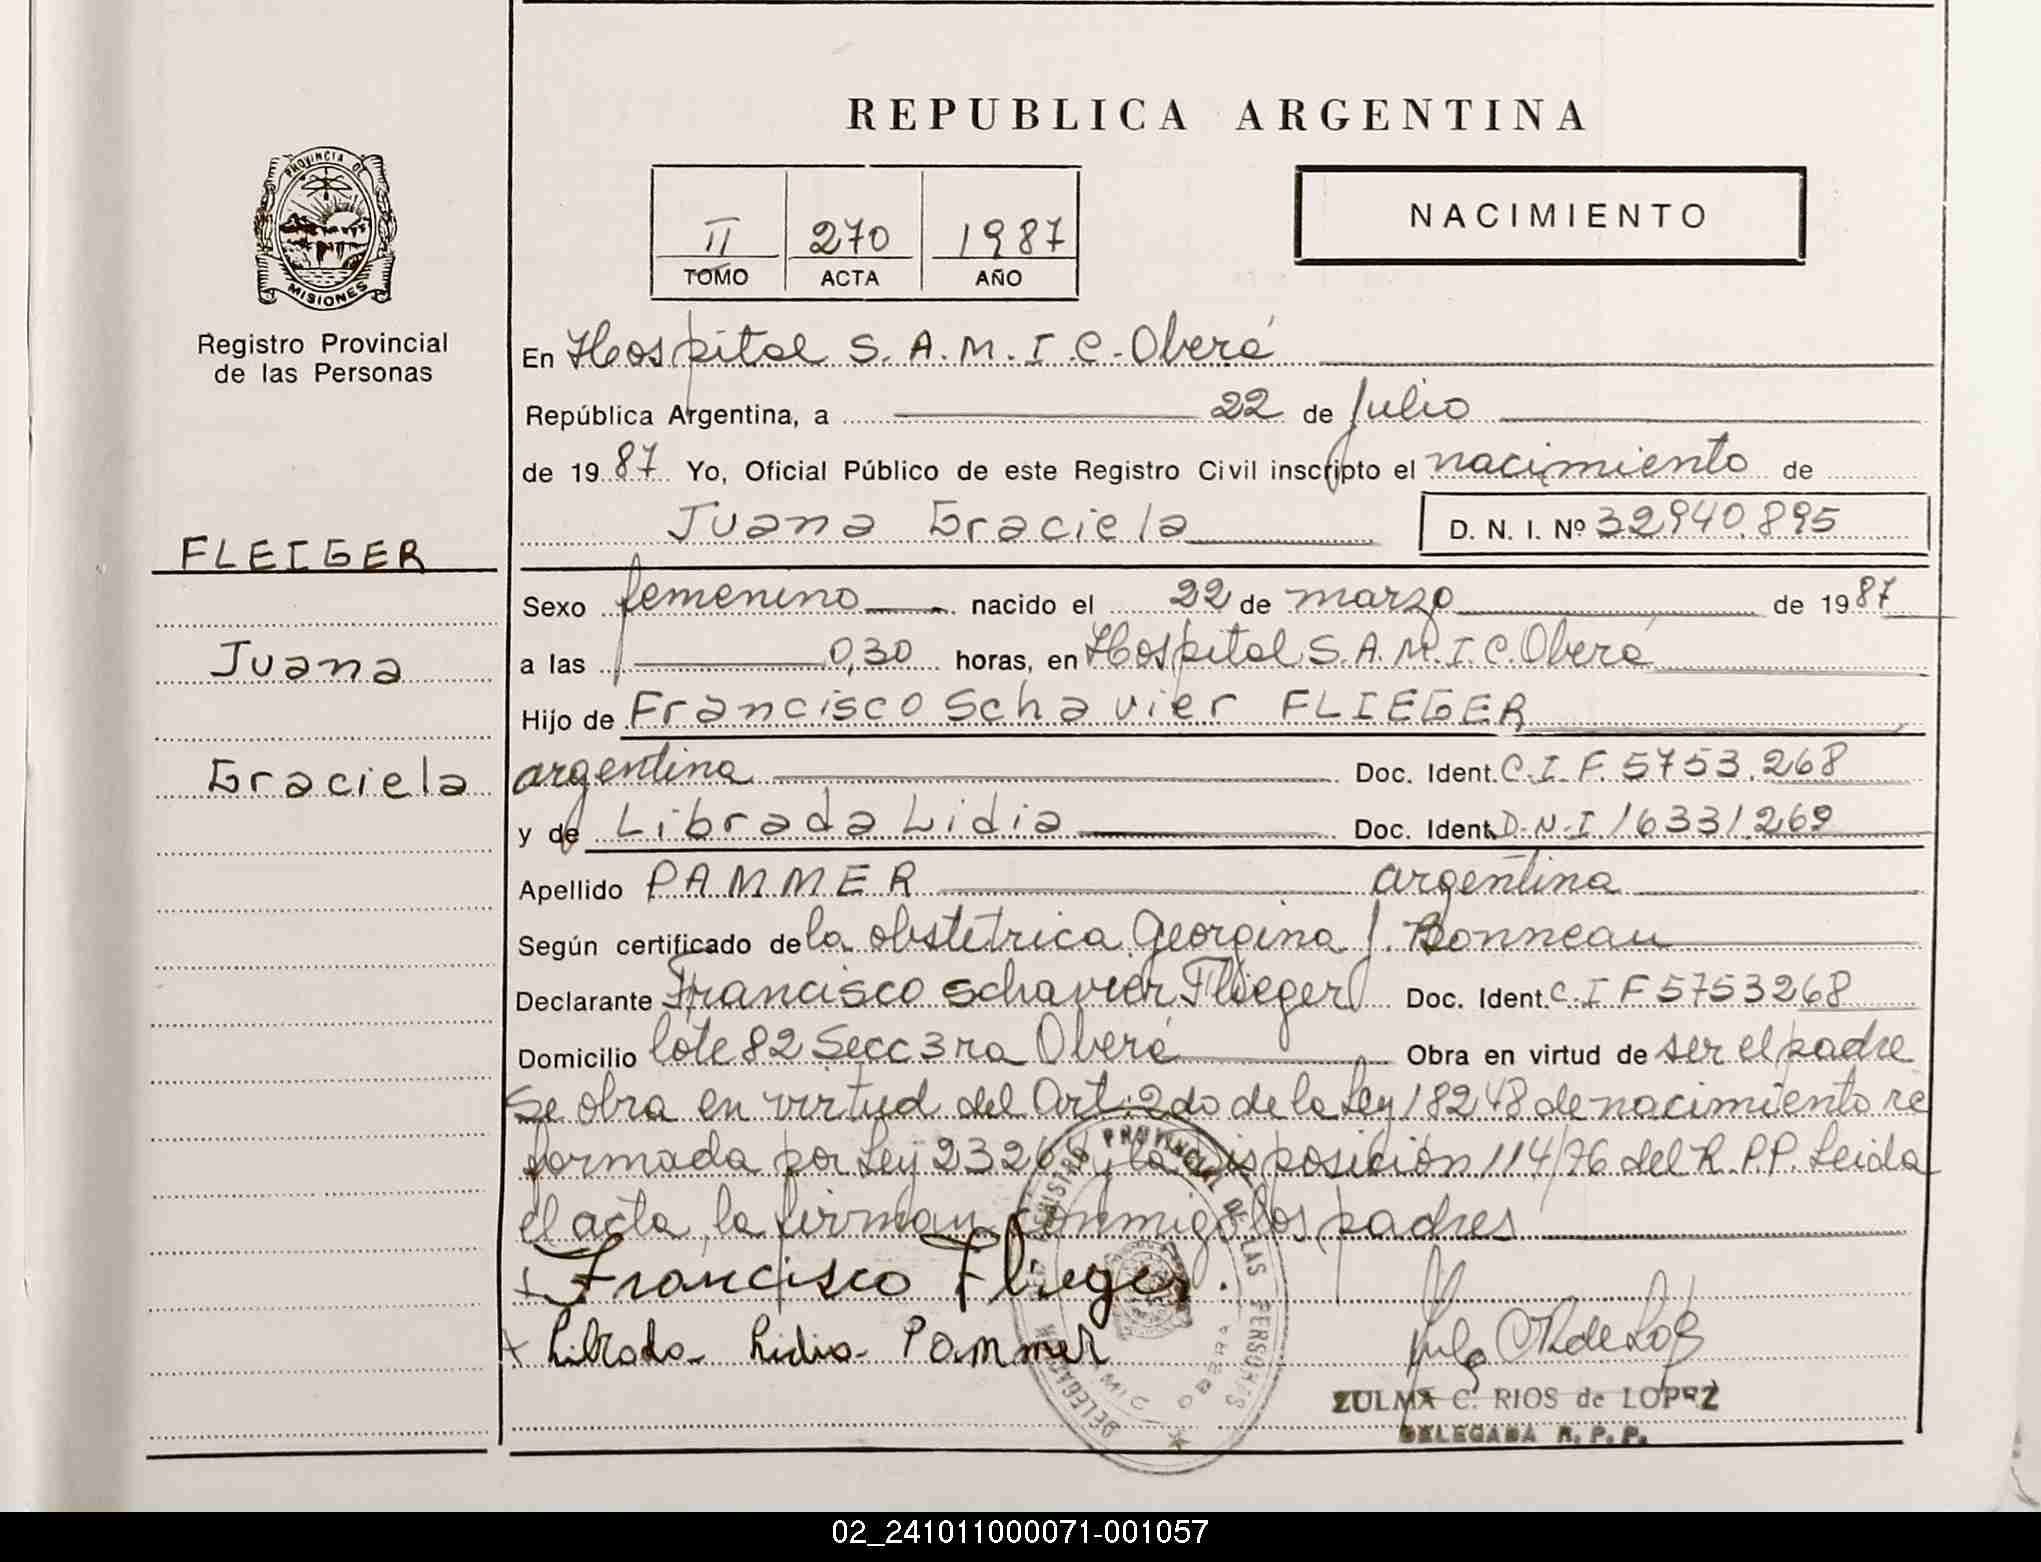 REPUBLICA ARGENTINA
PROVINCIA DE
MISIONES
Registro Provincial
de las Personas
II 270 1987
TOMO ACTA AÑO
NACIMIENTO
En Hospital S.A.M.I.C. Oberá
República Argentina, a 22 de Julio
de 1987 Yo, Oficial Público de este Registro Civil inscripto el nacimiento de
Juana Graciela D. N. I. Nº 32940.895
FLEIGER
Juana
Graciela
Sexo femenino nacido el 22 de marzo de 1987
a las 0,30 horas, en Hospital S.A.M.I.C. Oberá
Hijo de Francisco Schavier FLIEGER
argentina Doc. Ident. C.I.F. 5753.268
y de Librada Lidia Doc. Ident. D.N.I 16331.269
Apellido PAMMER argentina
Según certificado de la obstetrica Georgina J. Bonneau
Declarante Francisco Schavier Flieger Doc. Ident. C.I F 5753268
Domicilio lote 82 Secc 3ra Oberá Obra en virtud de ser el padre
Se obra en virtud del Art. 2do de la Ley 18248 de nacimiento re
formada por Ley 23264 y la disposición 114/76 del R.P.P. Leida
el acta, la firman conmigo los padres
+ Francisco Flieger.
+ Librada Lidia Pammer
REGISTRO PROVINCIAL DE LAS PERSONAS
DELEGACION
OBERA
ZULMA C. RIOS de LOPEZ
DELEGADA R. P. P.
02_241011000071-001057